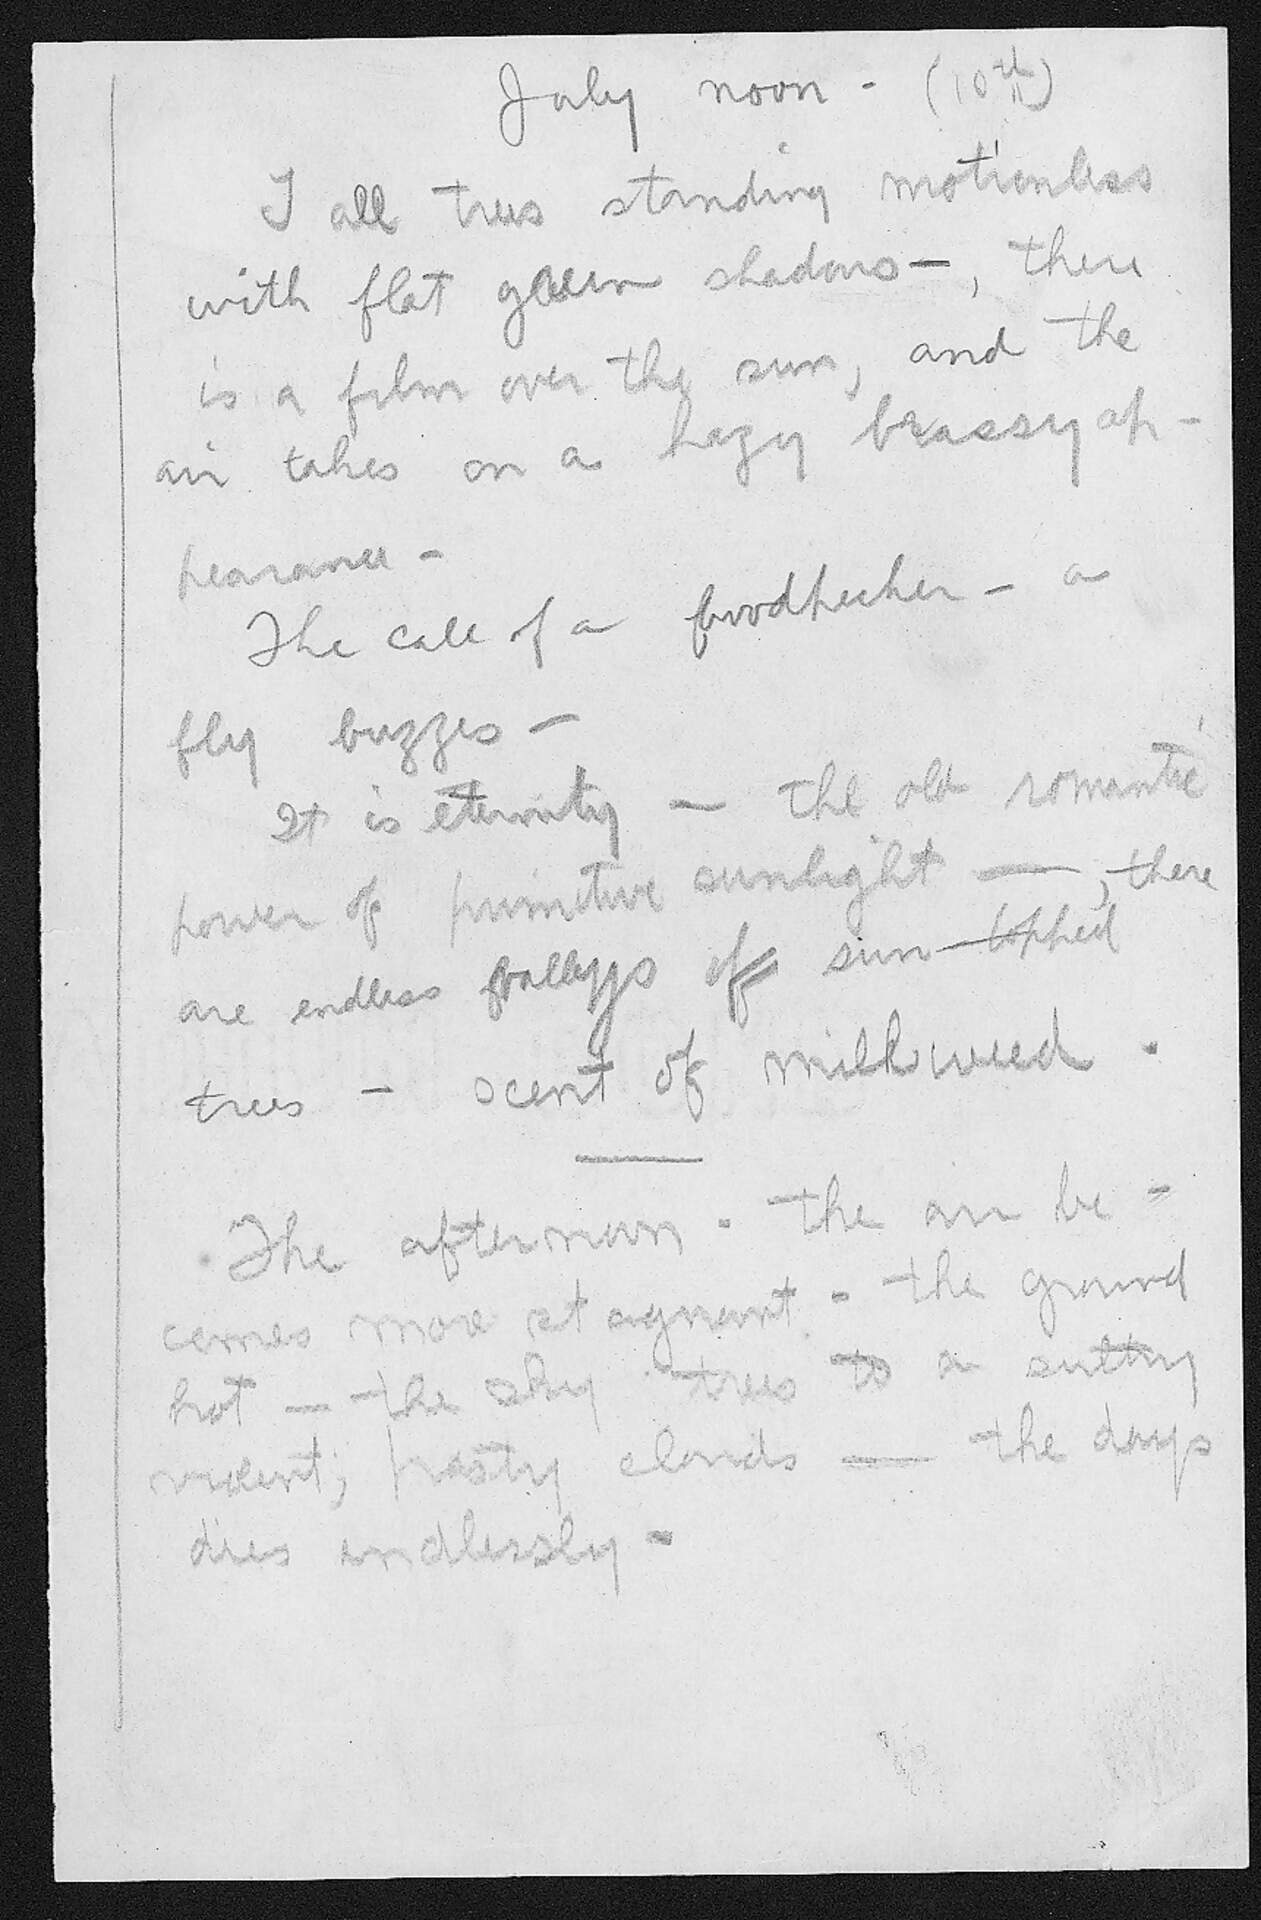 July noon - (10th)
Tall trees standing motionless
with flat green shadows —, there
is a film over the sun, and the
air takes on a hazy brassy ap-
pearance -
The call of a woodpecker - a
fly buzzes —
It is eternity — the old romantic
power of primitive sunlight —, there
are endless valleys of sun-topped
trees - scent of milkweed .
The afternoon - the air be-
comes more stagnant - the ground
hot — the sky trees to a sultry
clouds — the days
dies endlessly -